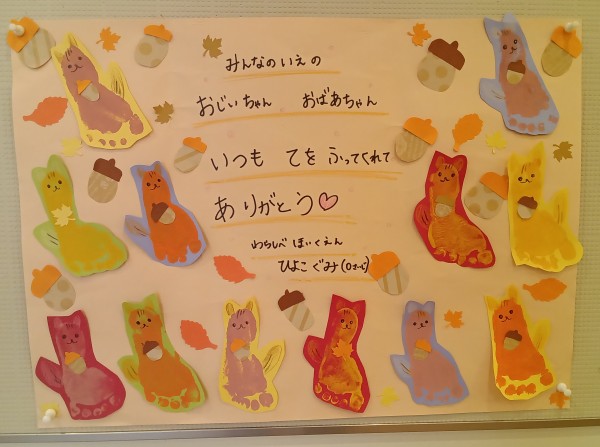 みんなのいえの
おじいちゃん おばあちゃん
いつも てを ふってくれて
ありがとう♡
わらしべ ほいくえん
ひよこ ぐみ(0さい)